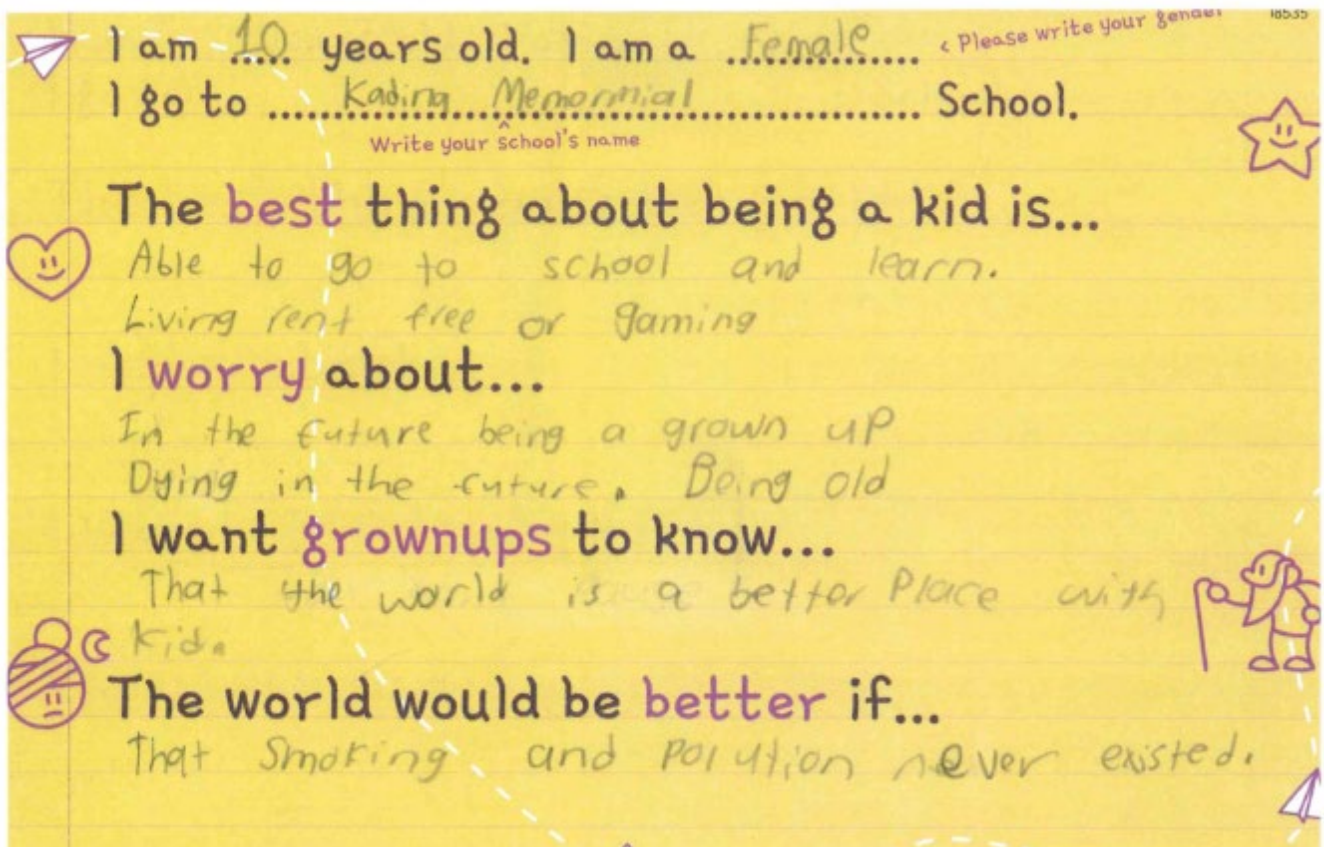 18535
I am 10 years old. I am a Female < Please write your gender
I go to Kading Memormial School.
^
Write your school's name
The best thing about being a kid is...
Able to go to school and learn.
Living rent free or gaming
I worry about...
In the future being a grown up
Dying in the future. Being old
I want grownups to know...
That the world is a better Place with
Kid.
The world would be better if...
That Smoking and Polution never existed.